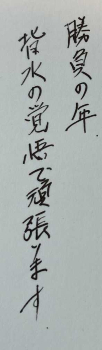 勝負の年
背水の覚悟で頑張ります